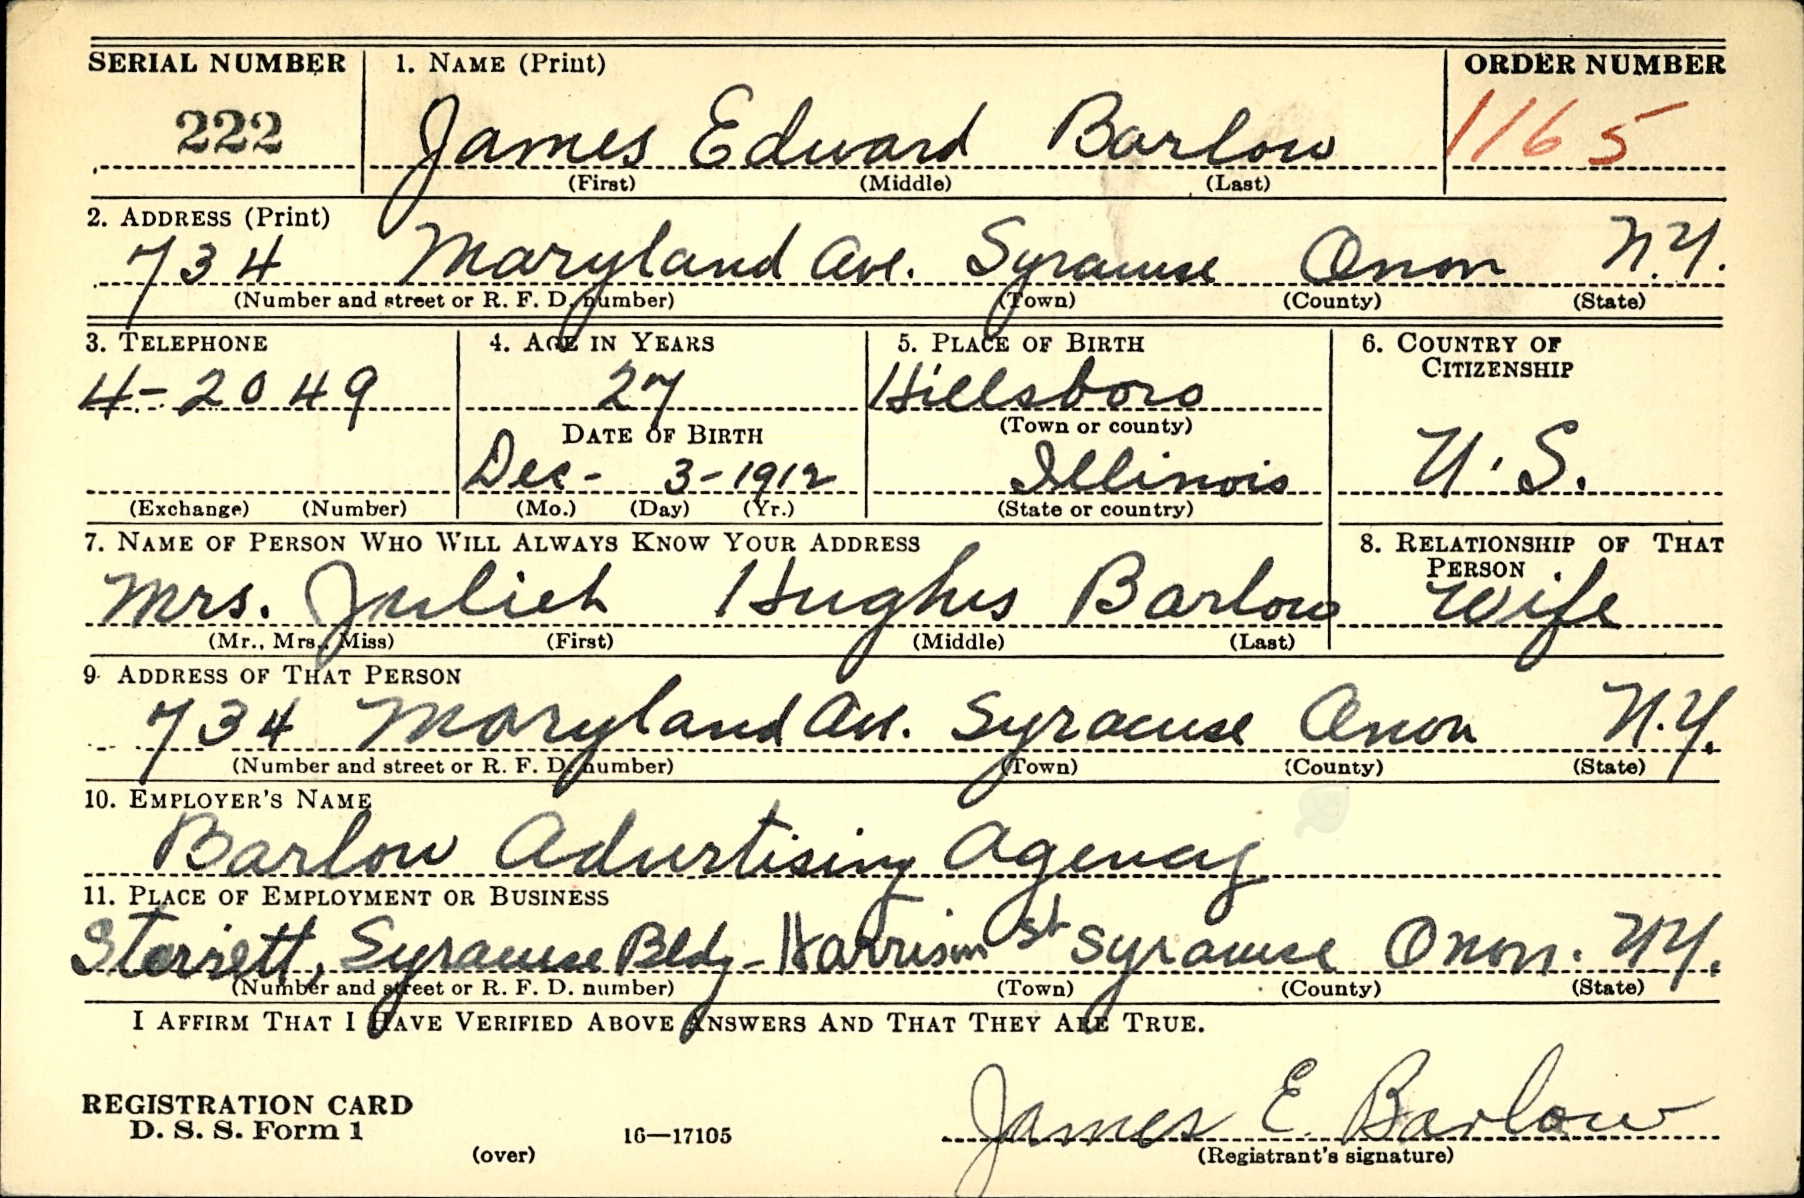 SERIAL NUMBER 1. NAME (Print) ORDER NUMBER
222 James Edward Barlow 1165
(First) (Middle) (Last)
2. ADDRESS (Print)
734 Maryland Ave. Syracuse Onon N.Y.
(Number and street or R. F. D. number) (Town) (County) (State)
3. TELEPHONE 4. AGE IN YEARS 5. PLACE OF BIRTH 6. COUNTRY OF
CITIZENSHIP
4-2049 27 Hillsboro
DATE OF BIRTH (Town or county)
Dec- 3-1912 Illinois U.S.
(Exchange) (Number) (Mo.) (Day) (Yr.) (State or country)
7. NAME OF PERSON WHO WILL ALWAYS KNOW YOUR ADDRESS 8. RELATIONSHIP OF THAT
PERSON
Mrs. Juliet Hughes Barlow Wife
(Mr., Mrs., Miss) (First) (Middle) (Last)
9. ADDRESS OF THAT PERSON
734 Maryland Ave. Syracuse Onon N.Y.
(Number and street or R. F. D. number) (Town) (County) (State)
10. EMPLOYER'S NAME
Barlow Advertising Agency
11. PLACE OF EMPLOYMENT OR BUSINESS
Sterrett, Syracuse Bldg - Harrison St Syracuse Onon. NY.
(Number and street or R. F. D. number) (Town) (County) (State)
I AFFIRM THAT I HAVE VERIFIED ABOVE ANSWERS AND THAT THEY ARE TRUE.
REGISTRATION CARD
D. S. S. Form 1 James E. Barlow
(over) 16—17105 (Registrant's signature)